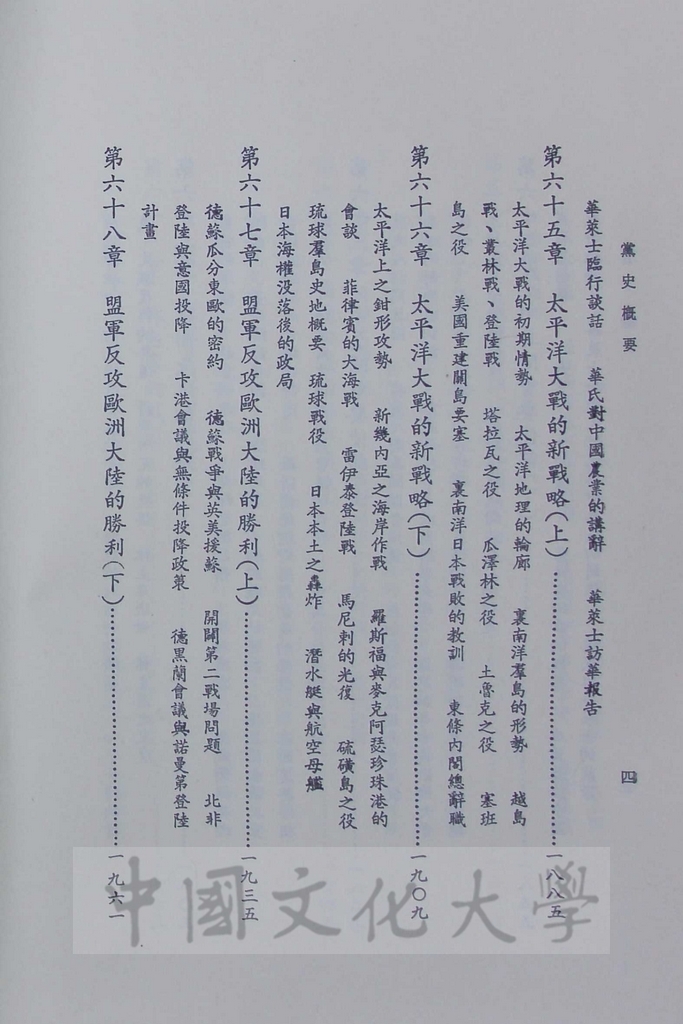 黨史概要
四
華萊士臨行談話　華氏對中國農業的講辭　華萊士訪華報告
第六十五章　太平洋大戰的新戰略(上)⋯⋯⋯⋯⋯⋯⋯⋯一八八五
太平洋大戰的初期情勢　太平洋地理的輪廓　裏南洋羣島的形勢　越島
戰、叢林戰、登陸戰　塔拉瓦之役　瓜澤林之役　土魯克之役　塞班
島之役　美國重建關島要塞　裏南洋日本戰敗的教訓　東條內閣總辭職
第六十六章　太平洋大戰的新戰略(下)⋯⋯⋯⋯⋯⋯⋯⋯一九〇九
太平洋上之鉗形攻勢　新幾內亞之海岸作戰　羅斯福與麥克阿瑟珍珠港的
會談　菲律賓的大海戰　雷伊泰登陸戰　馬尼剌的光復　硫磺島之役
琉球羣島史地概要　琉球戰役　日本本土之轟炸　潛水艇與航空母艦
日本海權没落後的政局
第六十七章　盟軍反攻歐洲大陸的勝利(上)⋯⋯⋯⋯⋯⋯⋯⋯一九三五
德蘇瓜分東歐的密約　德蘇戰爭與英美援蘇　開闢第二戰場問題　北非
登陸與意國投降　卡港會議與無條件投降政策　德黑蘭會議與諾曼第登陸
計畫
第六十八章　盟軍反攻歐洲大陸的勝利(下)⋯⋯⋯⋯⋯⋯⋯⋯一九六一
中國文化大學